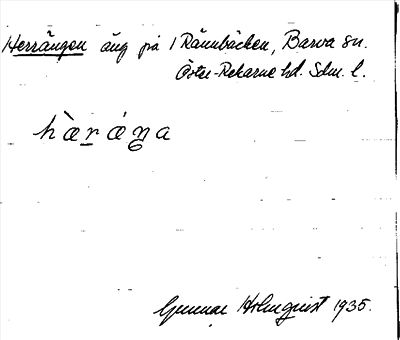 Herrängen äng på 1 Rännbäcken, Barva sn.
Öster-Rekarne hd. Sdm. l.
hæ̀ráŋa
Gunnar Holmquist 1935.